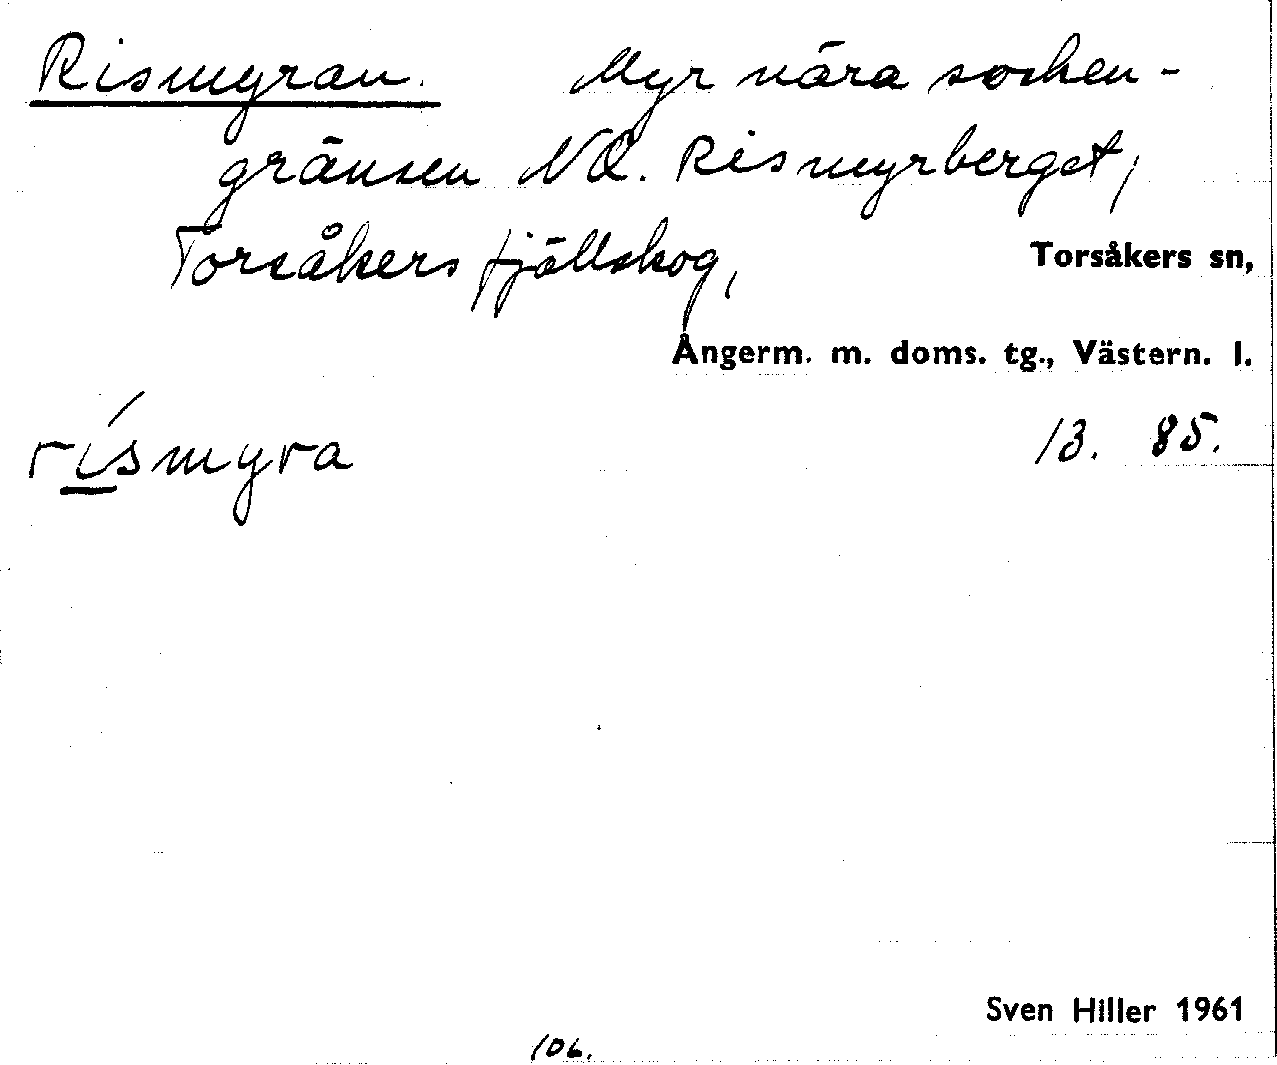 Rismyran. Myr nära socken-
gränsen NO. Rismyrberget,
Torsåkers fjällskog, Torsåkers sn,
Ångerm. m. doms. tg., Västern. l.
rísmyra 13. 85.
Sven Hiller 1961
106.